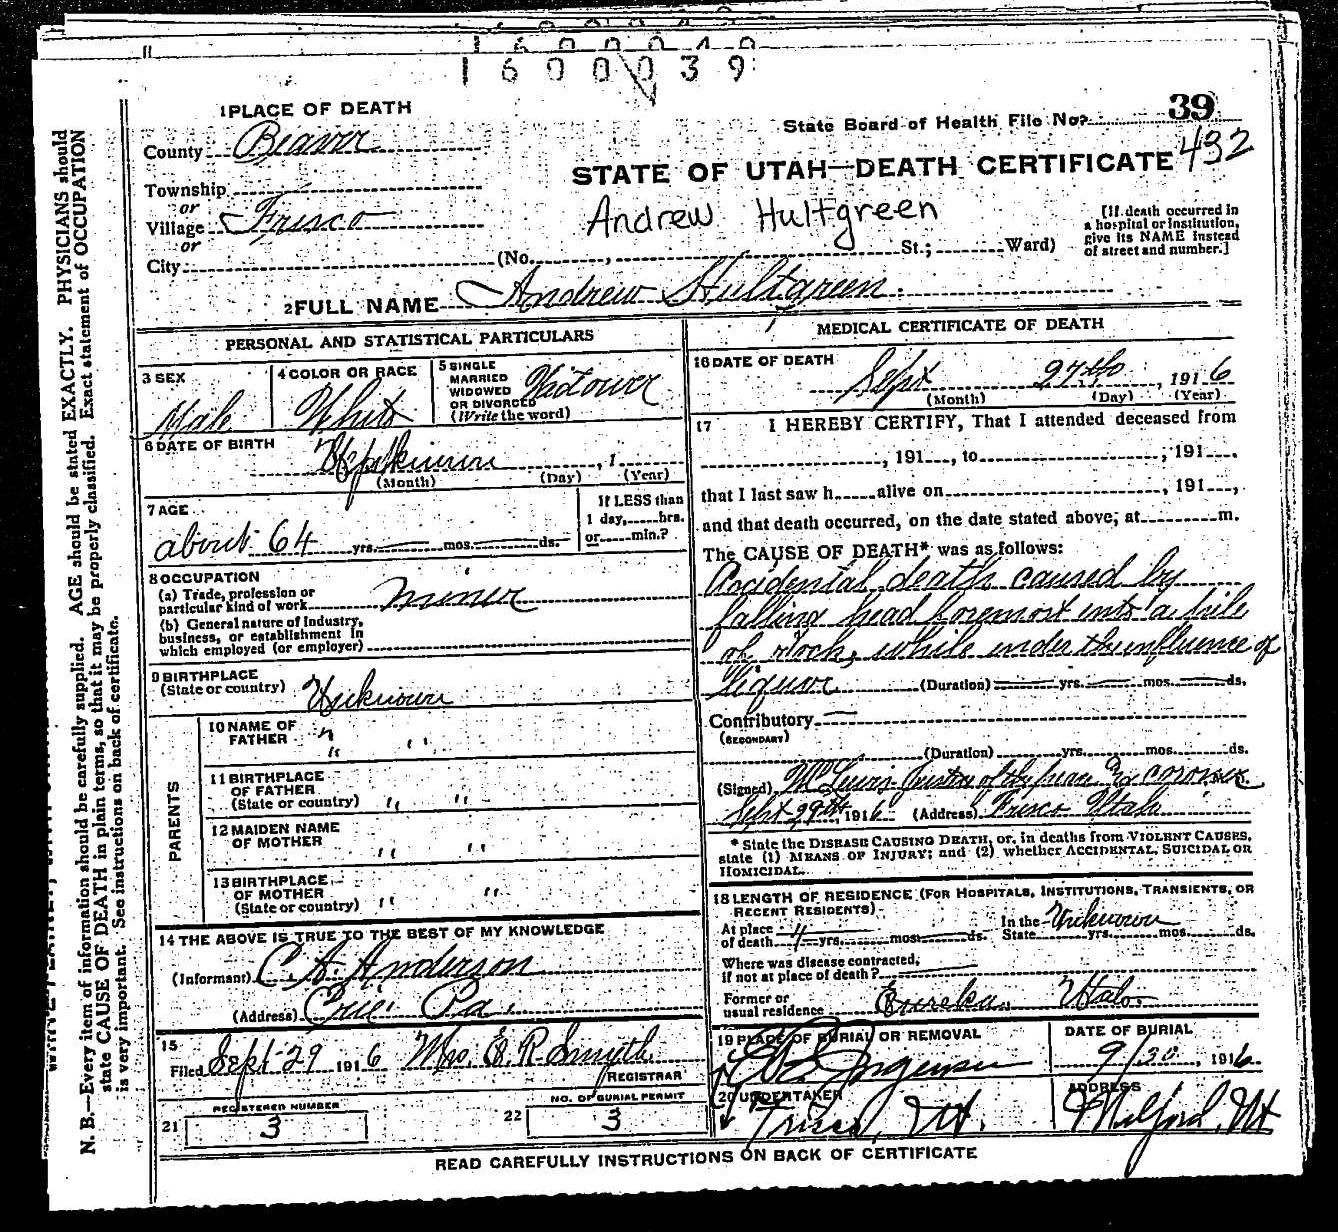 1600039
1 PLACE OF DEATH
39
State Board of Health File No.
432
County Beaver
STATE OF UTAH—DEATH CERTIFICATE
Township
or
Village Frisco
Andrew Hultgreen
or
City (No. , St.; Ward)
[If death occurred in
a hospital or institution,
give its NAME instead
of street and number.]
2 FULL NAME Andrew Hultgreen.
PERSONAL AND STATISTICAL PARTICULARS
3 SEX
Male
4 COLOR OR RACE
White
5 SINGLE
MARRIED
WIDOWED
OR DIVORCED
(Write the word)
Widower
6 DATE OF BIRTH
(Month) (Day) , 1 (Year)
7 AGE
about 64 yrs. mos. ds.
If LESS than
1 day, hrs.
or min.?
8 OCCUPATION
(a) Trade, profession or
particular kind of work miner
(b) General nature of Industry,
business, or establishment in
which employed (or employer)
9 BIRTHPLACE
(State or country) Unknown
PARENTS
10 NAME OF
FATHER " "
11 BIRTHPLACE
OF FATHER
(State or country) " "
12 MAIDEN NAME
OF MOTHER " "
13 BIRTHPLACE
OF MOTHER
(State or country) " "
14 THE ABOVE IS TRUE TO THE BEST OF MY KNOWLEDGE
(Informant) C. A. Anderson
(Address) Erie Pa.
15
Filed Sept 29 1916 Mrs. E. R. Smyth
REGISTRAR
REGISTERED NUMBER
21 3
NO. OF BURIAL PERMIT
22 3
MEDICAL CERTIFICATE OF DEATH
16 DATE OF DEATH
Sept 27th, 1916
(Month) (Day) (Year)
17 I HEREBY CERTIFY, That I attended deceased from
, 191 , to ; 191 .
that I last saw h alive on , 191 ,
and that death occurred, on the date stated above, at m.
The CAUSE OF DEATH* was as follows:
Accidental death caused by
falling head foremost into a pile
of rock, while under the influence of
Liquor (Duration) yrs. mos. ds.
Contributory
(SECONDARY)
(Duration) yrs. mos. ds.
(Signed) Lewis Justice of the peace coroner
Sept 29th, 1916 (Address) Frisco Utah
* State the DISEASE CAUSING DEATH, or, in deaths from VIOLENT CAUSES,
state (1) MEANS OF INJURY; and (2) whether ACCIDENTAL, SUICIDAL OR
HOMICIDAL.
18 LENGTH OF RESIDENCE (FOR HOSPITALS, INSTITUTIONS, TRANSIENTS, OR
RECENT RESIDENTS)
At place
of death yrs. mos. ds.
In the
State Unknown yrs. mos. ds.
Where was disease contracted,
if not at place of death?
Former or
usual residence Eureka, Utah.
19 PLACE OF BURIAL OR REMOVAL
DATE OF BURIAL
9/30, 1916
20 UNDERTAKER
Jorgensen
Frisco, Ut.
ADDRESS
Milford, Ut
READ CAREFULLY INSTRUCTIONS ON BACK OF CERTIFICATE
N. B.—Every item of information should be carefully supplied. AGE should be stated EXACTLY. PHYSICIANS should
state CAUSE OF DEATH in plain terms, so that it may be properly classified. Exact statement of OCCUPATION
is very important. See instructions on back of certificate.